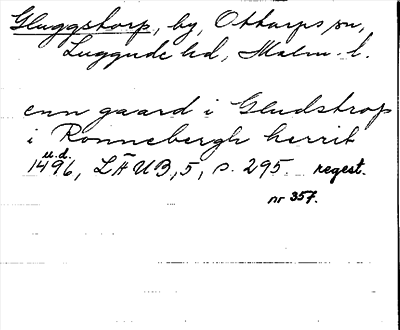 Gluggstorp, by, Ottarps sn,
Luggude hd, Malm. l.
enn gaard i Gludstrop
i Ronnebergh herrit
u.d.
1496, LÄUB, 5, s. 295. regest.
nr 357.